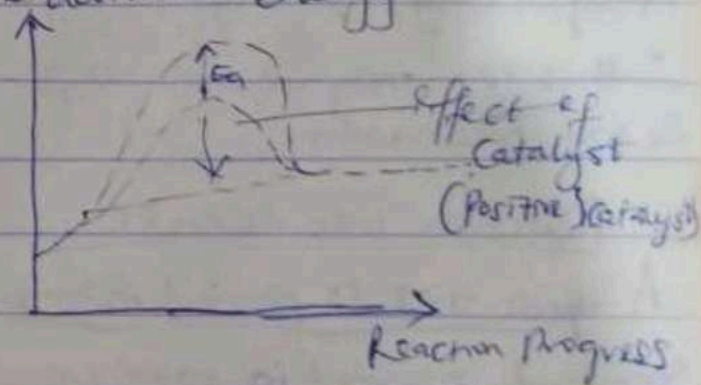 Ea
effect of
Catalyst
(Positive) Catalyst
Reaction Progress